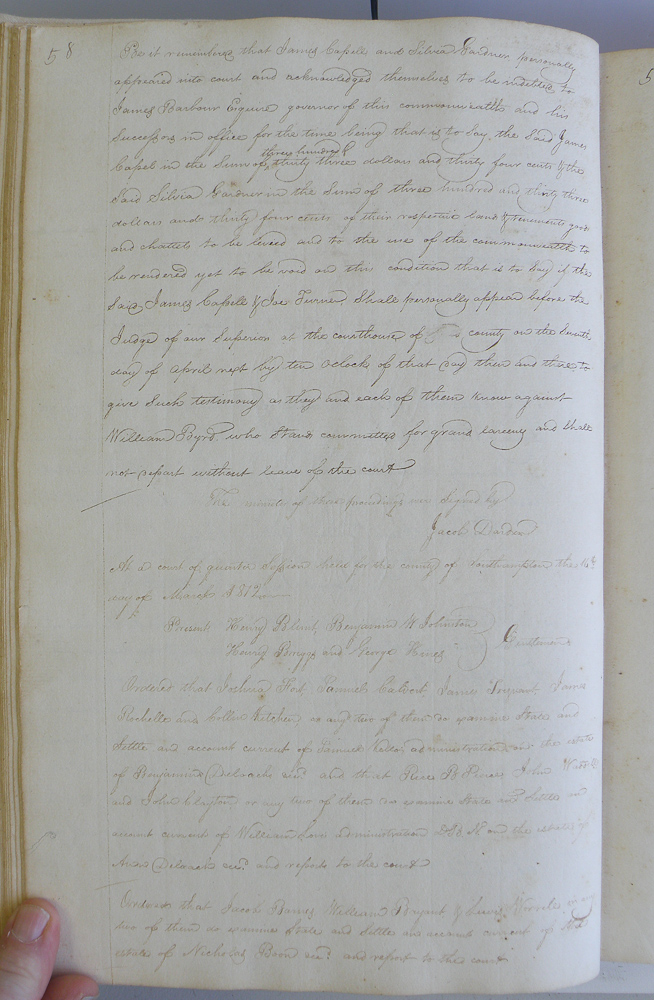 58
Be it remembered that James Capell and Silvia Gardner personally
appeared into court and acknowledged themselves to be indebted to
James Barbour Esquire governor of this commonwealth and his
Successors in office for the time being that is to Say, the Said James
three hundred &
Capel in the Sum of thirty three dollars and thirty four cents & the
Said Silvia Gardner in the Sum of three hundred and thirty three
dollars and thirty four cents of their respective lands & tenements goods
and chattels to be levied and to the use of the commonwealth to
be rendered yet to be void on this condition that is to Say if the
Said James Capell & Joe Turner Shall personally appear before the
Judge of our Superior at the courthouse of county on the
day of April next by ten oclock of that day then and there to
give Such testimony as they and each of them know against
William Byrd who Stands committed for grand larceny and Shall
not depart without leave of the court
The minutes of these proceedings were Signed by
Jacob Darden
At a court of quarter Session held for the county of Southampton the
day of March 1812
Present Henry Blunt, Benjamin W Johnston
Henry Briggs and George
Ordered that Joshua Fort, Samuel Calvert, James James
Rochelle and Collin Kitchen or any two of them do examine State and
Settle an account current of Samuel administration on the estate
of Benjamin Deloach decd. and that John
and John or any two of them do examine State and Settle an
account current of William administration on the estate of
Deloach decd. and report to the court
Ordered that Jacob Barnes William Bryant & or any
two of them do examine State and Settle an account current of the
estate of Nicholas Boon decd. and report to the court
5